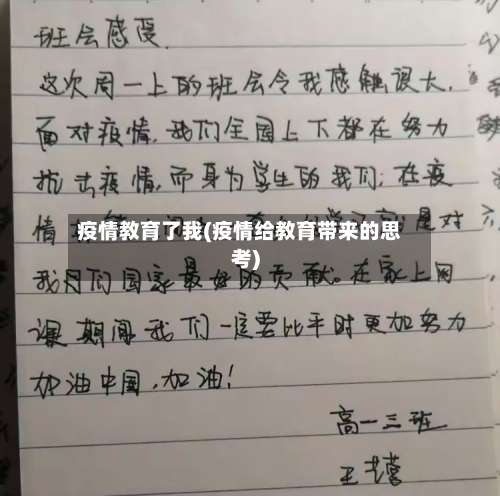 班会感受.
这次周一上的班会令我感触很大.
面对疫情,我们全国上下都在努力
抗击疫情,而身为学生的我们,在疫
情
是对
疫情教育了我(疫情给教育带来的思
考)
我们国家最好的贡献。在家上网
课期间我们一定要比平时更加努力
加油中国,加油!
高一三班